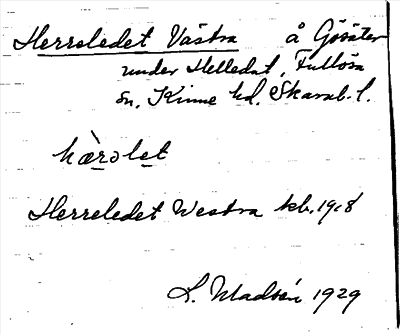 Herreledet Västra å Gösäter
under Helledal, Fullösa
sn, Kinne hd, Skarab. l.
hæ̀rəlet
Herreledet Westra kb, 1918
L. Madsén 1929